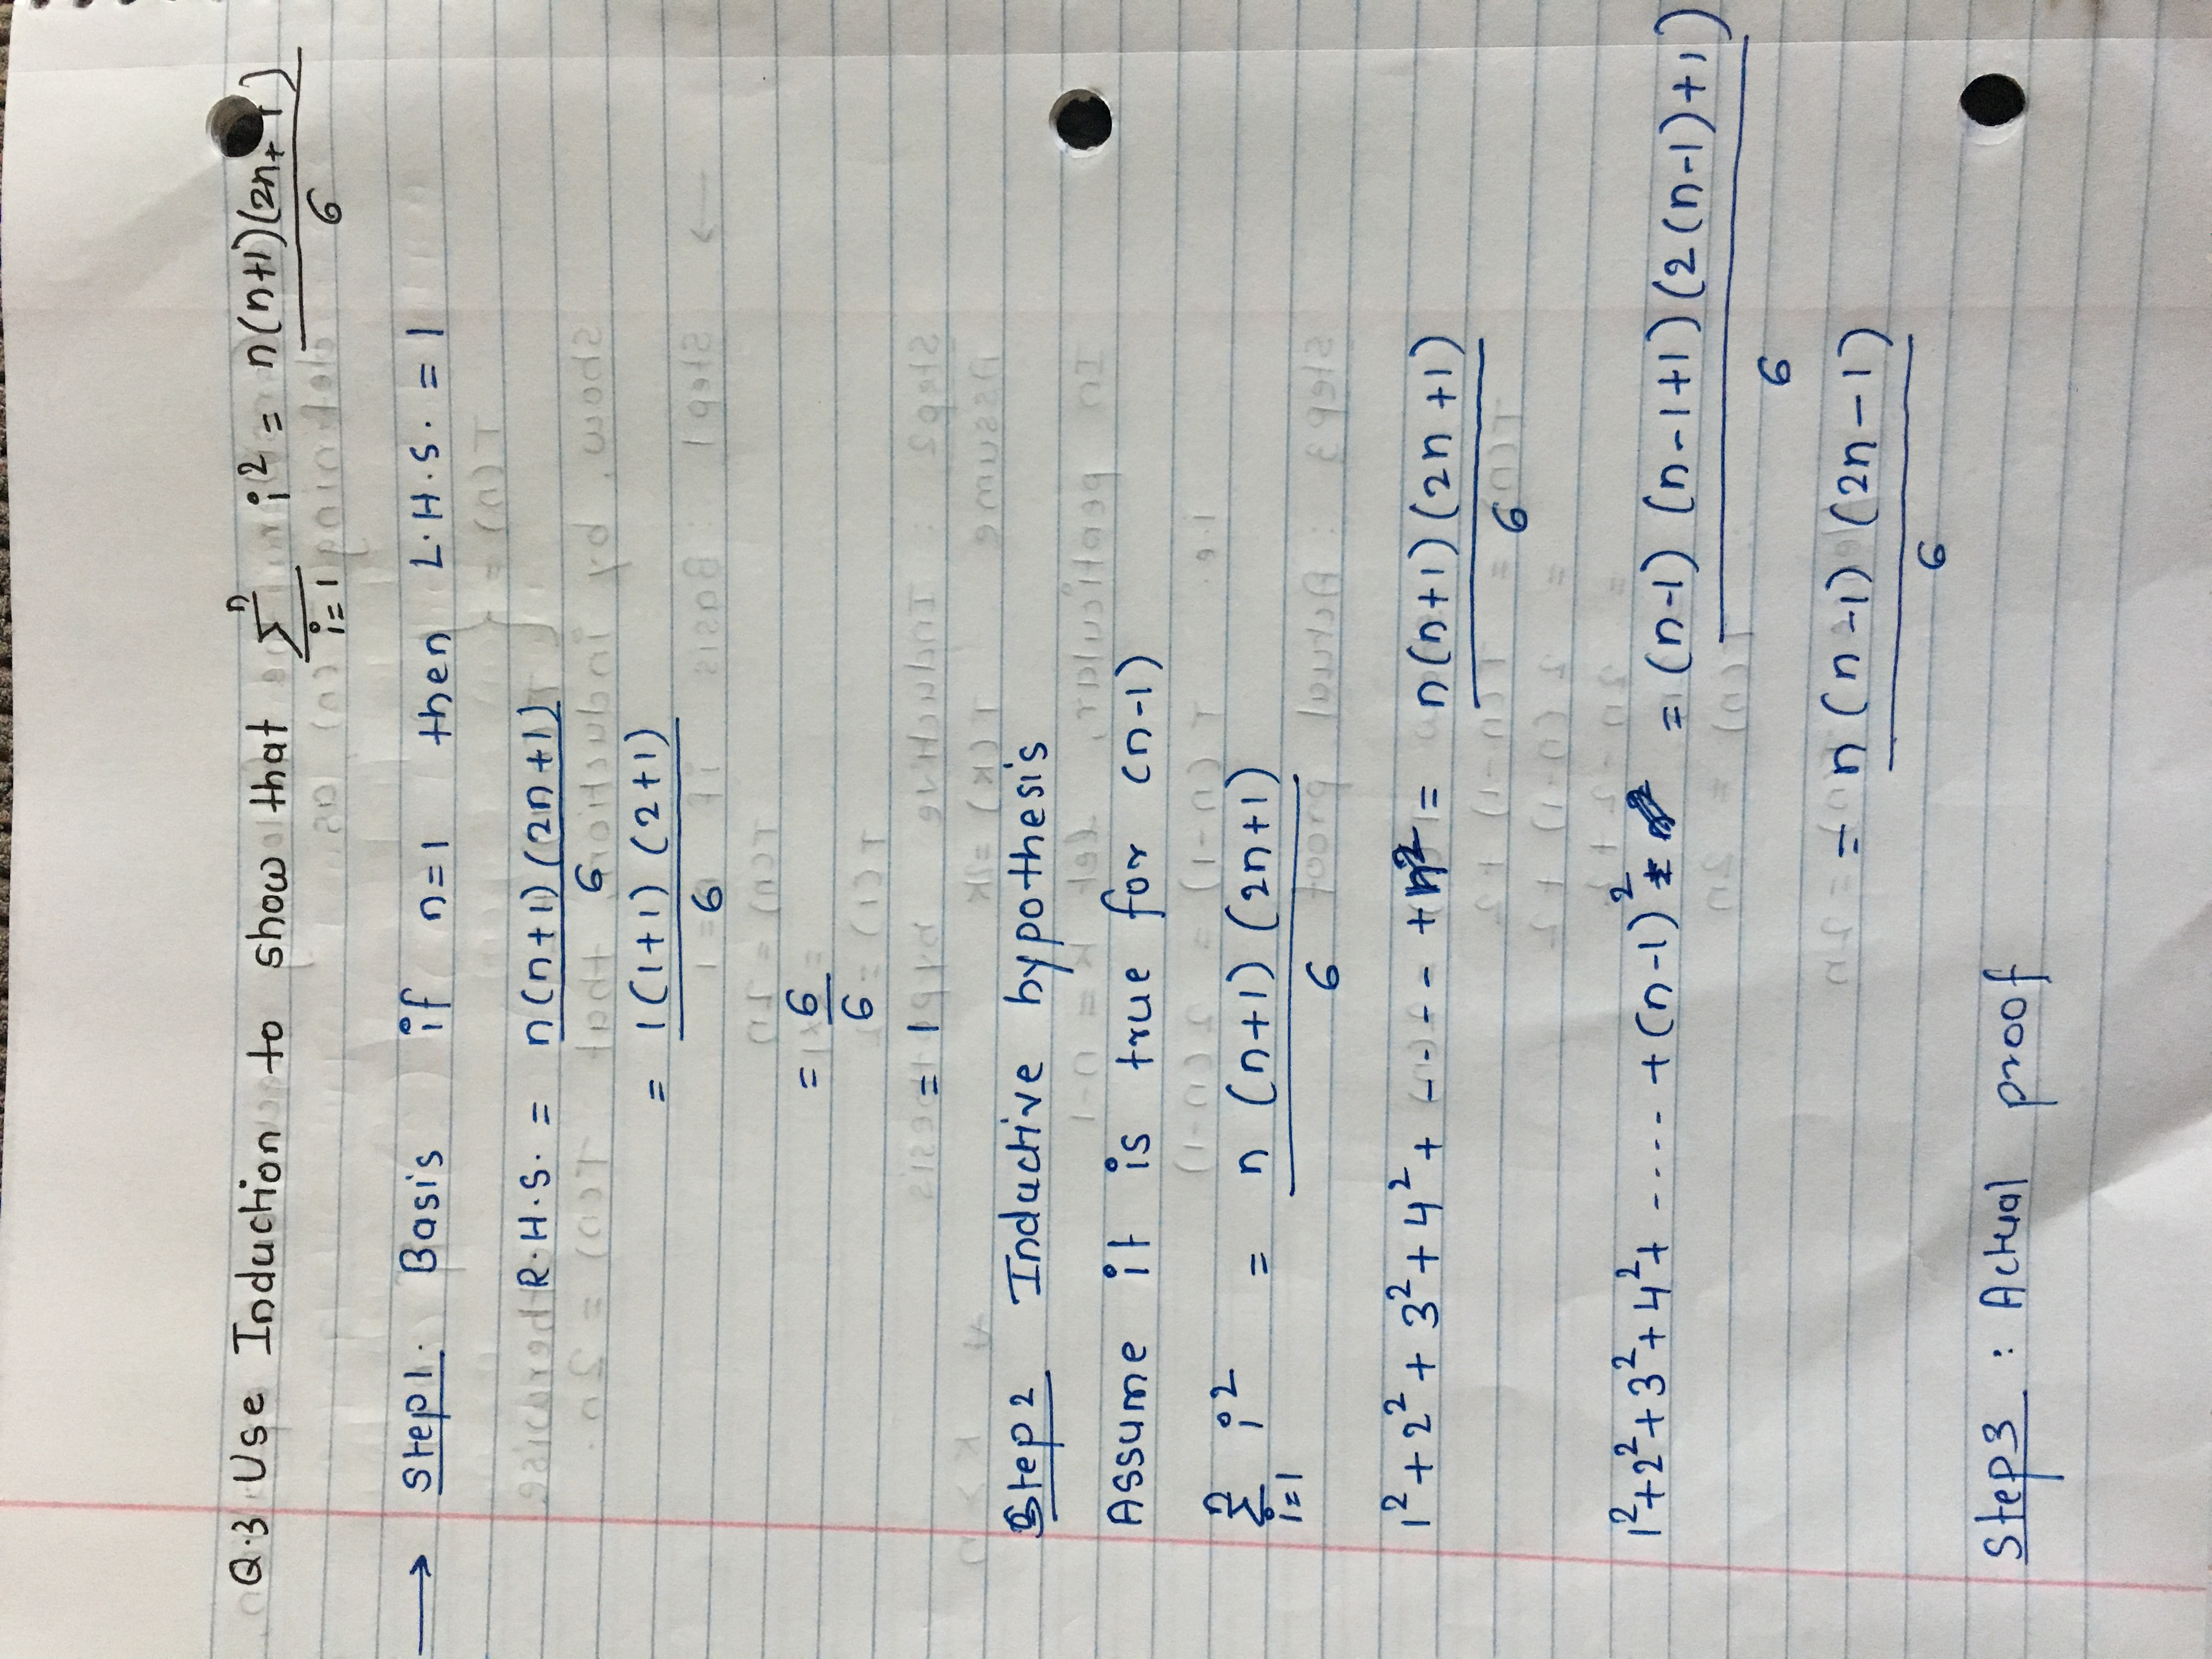 Q.3 Use Induction to show that n∑i=1 i² = n(n+1)(2n+1)/6
→ Step1. Basis if n=1 then L.H.S. = 1
R.H.S. = n(n+1)(2n+1)/6
= 1(1+1)(2+1)/6
= 6/6
= 1
Step2 Inductive hypothesis
Assume it is true for (n-1)
n∑i=1 i² = n(n+1)(2n+1)/6
1²+2²+3²+4²+ ---- +n² = n(n+1)(2n+1)/6
1²+2²+3²+4²+ ---- +(n-1)² = (n-1)(n-1+1)(2(n-1)+1)/6
= n(n-1)(2n-1)/6
Step3 : Actual proof